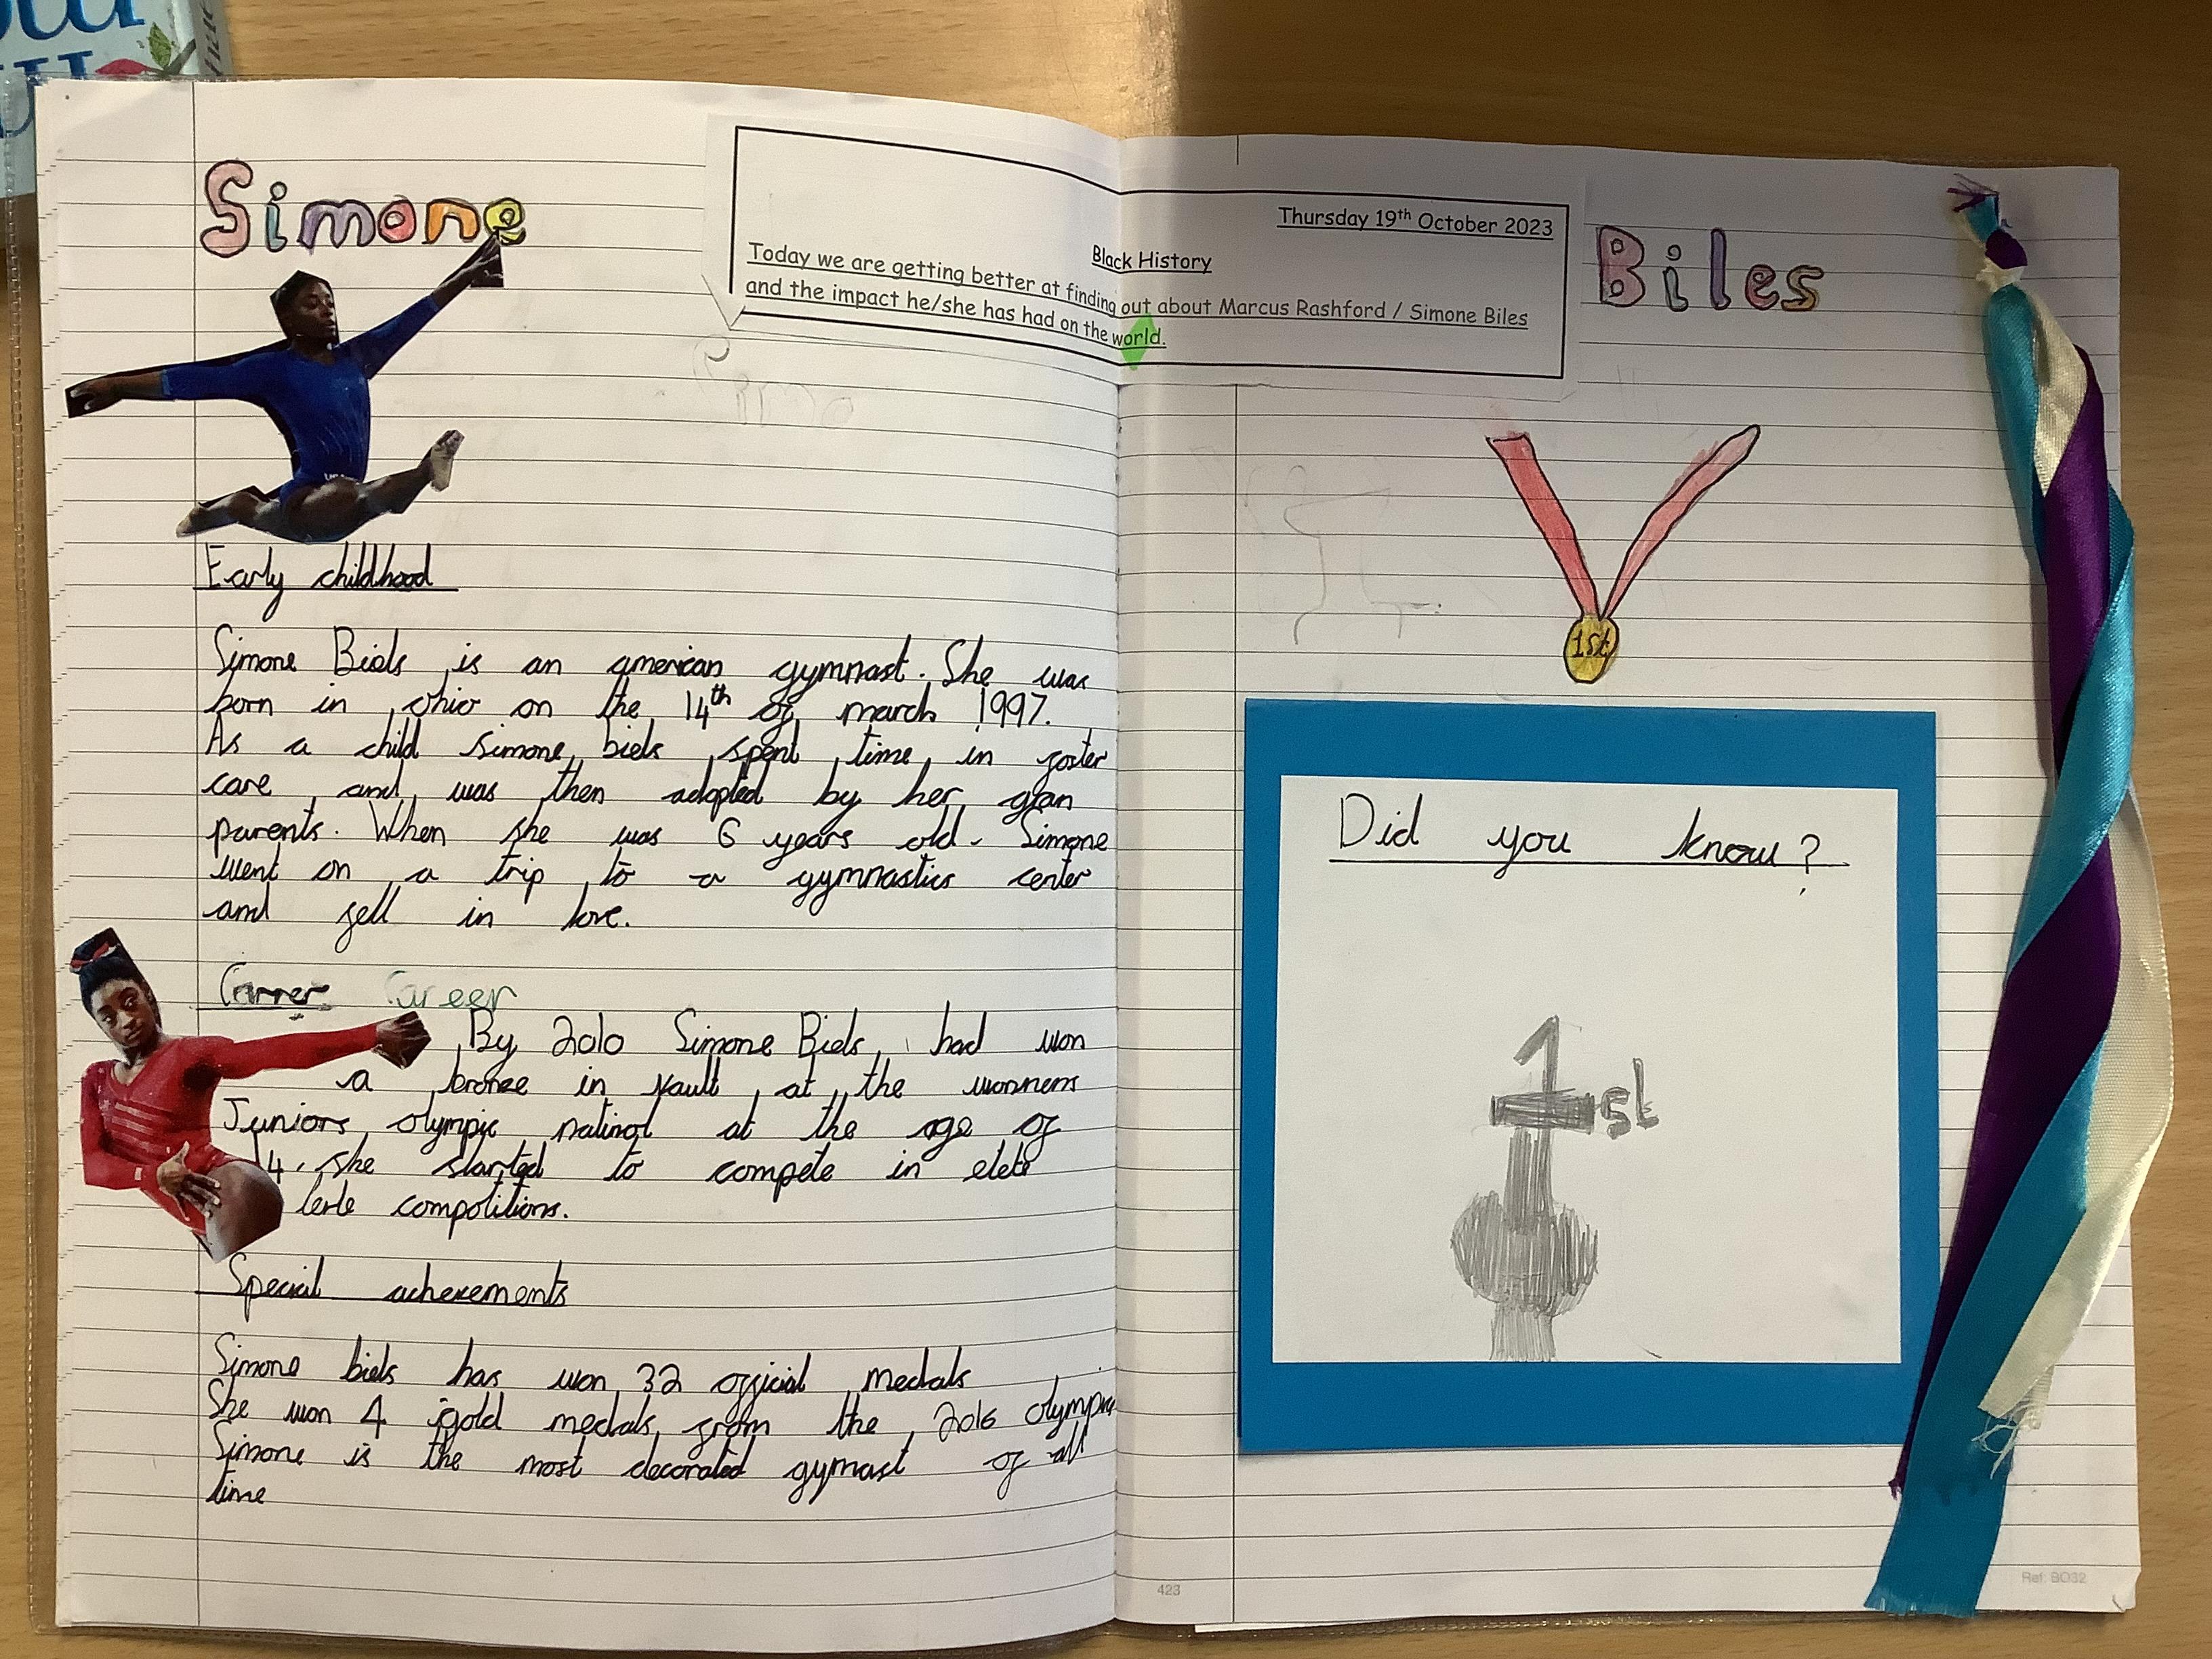 Simone
Thursday 19th October 2023
Black History
Today we are getting better at finding out about Marcus Rashford / Simone Biles
and the impact he/she has had on the world.
Biles
Early childhood
Simone Biels is an american gymnast. She was
born in ohio on the 14th of march 1997.
As a child simone biels spent time in foster
care and was then adopted by her gran
parents. When she was 6 years old. Simone
went on a trip to a gymnastics center
and fell in love.
Carrer Career
By 2010 Simone Biels, had won
a bronze in vault at the womens
Juniors olympic natinol at the age of
14. she started to compete in elete
lerle compotitions.
Special achevements
Simone biels has won 32 official medals
She won 4 gold medals from the 2016 olympics
Simone is the most decorated gymast of all
time
1st
Did you know?
1st
423
Ref: BO32